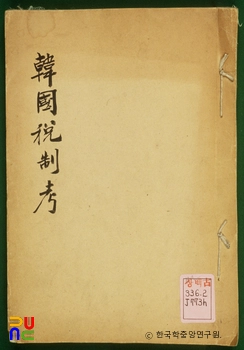 韓國稅制考
336.2
J773h
© 한국학중앙연구원